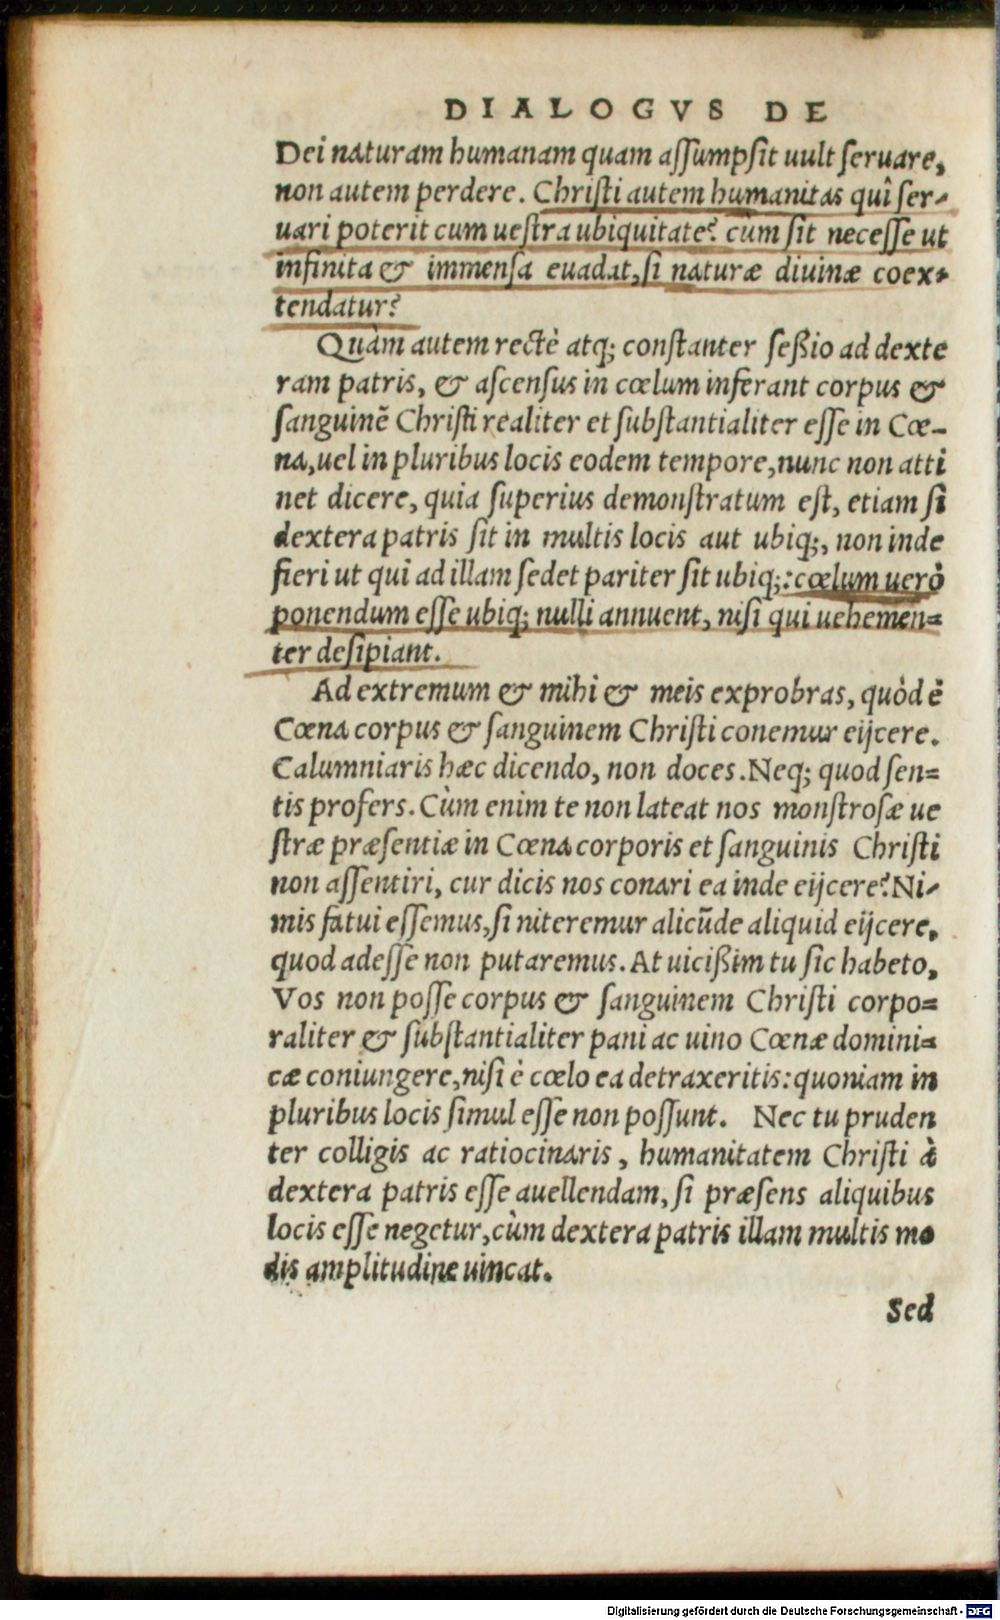 DIALOGVS DE
Dei naturam humanam quam aſſumpſit uult ſeruare,
non autem perdere. Chriſti autem humanitas quî ſer-
uari poterit cum ueſtra ubiquitate? cùm ſit neceſſe ut
infinita & immenſa euadat, ſi naturæ diuinæ coex-
tendatur?
Quàm autem rectè atq; conſtanter ſeßio ad dexte
ram patris, & aſcenſus in cœlum inferant corpus &
ſanguinẽ Chriſti realiter et ſubſtantialiter eſſe in Cœ-
na, uel in pluribus locis eodem tempore, nunc non atti
net dicere, quia ſuperius demonſtratum eſt, etiam ſi
dextera patris ſit in multis locis aut ubiq;, non inde
fieri ut quî ad illam ſedet pariter ſit ubiq;: cœlum uerò
ponendum eſſe ubiq; nulli annuent, niſi qui uehemen=
ter deſipiant.
Ad extremum & mihi & meis exprobras, quòd è
Cœna corpus & ſanguinem Chriſti conemur eijcere.
Calumniaris hæc dicendo, non doces. Neq; quod ſen=
tis profers. Cùm enim te non lateat nos monſtroſæ ue
ſtræ præſentiæ in Cœna corporis et ſanguinis Chriſti
non aſſentiri, cur dicis nos conari ea inde eijcere? Ni-
mis fatui eſſemus, ſi niteremur alicũde aliquid eijcere,
quod adeſſe non putaremus. At uicißim tu ſic habeto,
Vos non poſſe corpus & ſanguinem Chriſti corpo=
raliter & ſubſtantialiter pani ac uino Cœnæ domini=
cæ coniungere, niſi è cœlo ea detraxeritis: quoniam in
pluribus locis ſimul eſſe non poſſunt. Nec tu pruden
ter colligis ac ratiocinaris, humanitatem Chriſti à
dextera patris eſſe auellendam, ſi præſens aliquibus
locis eſſe negetur, cùm dextera patris illam multis mo
dis amplitudine uincat.
Sed
Digitalisierung gefördert durch die Deutsche Forschungsgemeinschaft - DFG